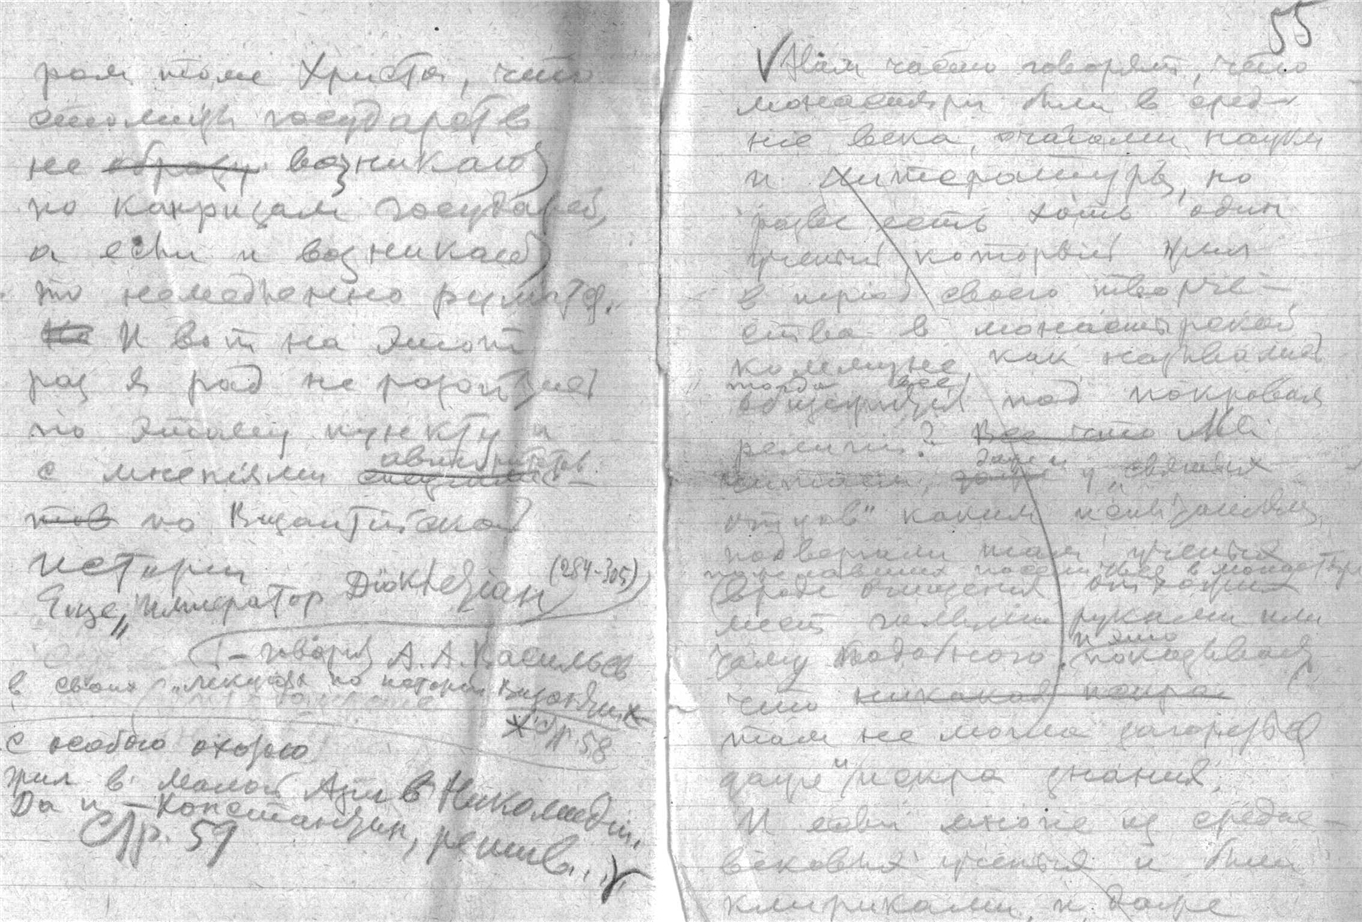 ром томе Христа, что
столицы государств
не образу возникают
по капризам государей,
а если и возникают
то немедленно рушатся.
Но И вот на этот
раз я рад не разойтись
по этому пункту и
с мнениями
тов по Византийской
истории
Еще „император Диоклециан (284-305)
— говорит А. А. Васильев
в своих „лекциях по истории Византии
стр. 58
с особою охотою
жил в Малой Азии в Никомедии.
Да и — Константин, решив...
Стр. 59
55
Нам часто говорят, что
монастыри были в сред-
ние века очагами науки
и литературы, но
разве есть хоть один
ученый который жил
в период своего творче-
ства в монастырской
коммуне, как называлось
тогда все
под покровом
религии? Все что Мы
читаем, даже у „святых
отцов" каким
подвергали там ученых
в монастыре
(вроде очищения отхожих
мест голыми руками или
тому подобного показывает,
что никакая искра
там не могла загореться
даже искра знания.
И если многие из средне-
вековых ученых и были
клириками, и даже